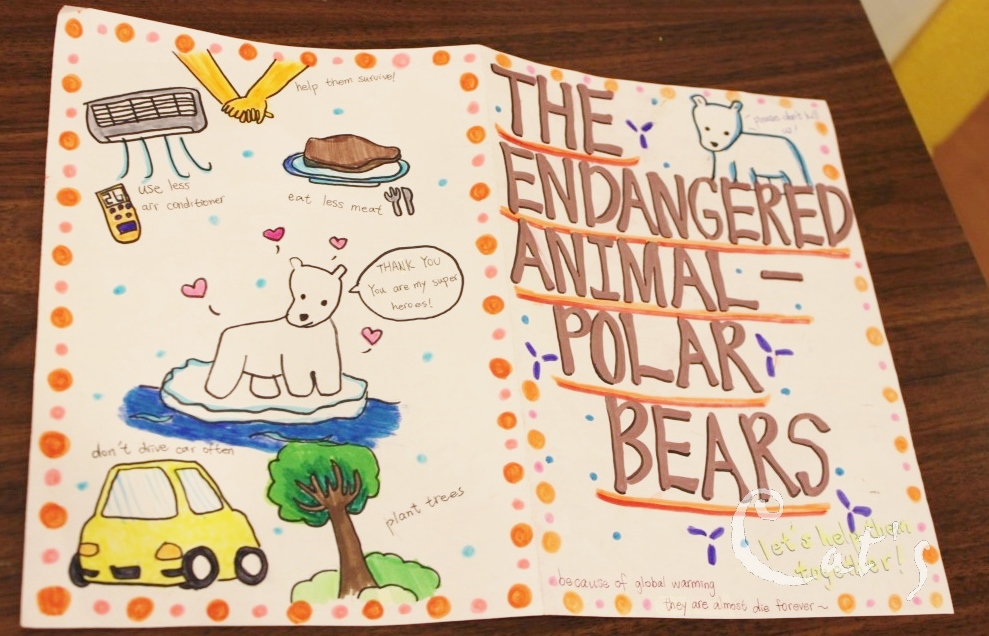 help them survive!
use less
air conditioner
26
eat less meat
THANK YOU
You are my super
heroes!
don't drive car often
plant trees
THE
ENDANGERED
ANIMAL -
POLAR
BEARS
please don't kill
us!
let's help them
together!
because of global warming
they are almost die forever~
Cat's